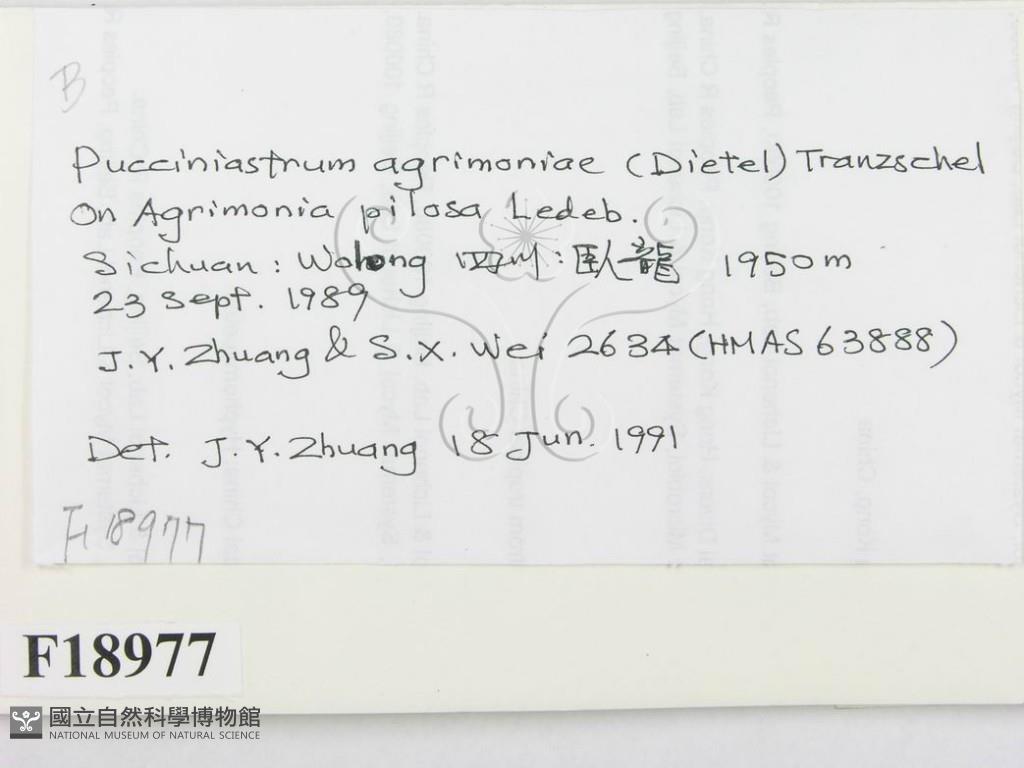 B
Pucciniastrum agrimoniae (Dietel) Tranzschel
On Agrimonia pilosa Ledeb.
Sichuan: Wolong 四川: 臥龍 1950m
23 Sept. 1989
J.Y. Zhuang & S.X. Wei 2634 (HMAS 63888)
Det. J.Y. Zhuang 18 Jun. 1991
F18977
F18977
國立自然科學博物館
NATIONAL MUSEUM OF NATURAL SCIENCE